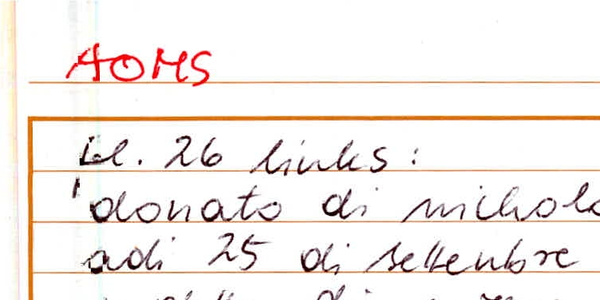 AOMS
id. 26 links:
'donato di nicholo
adi 25 di settenbre